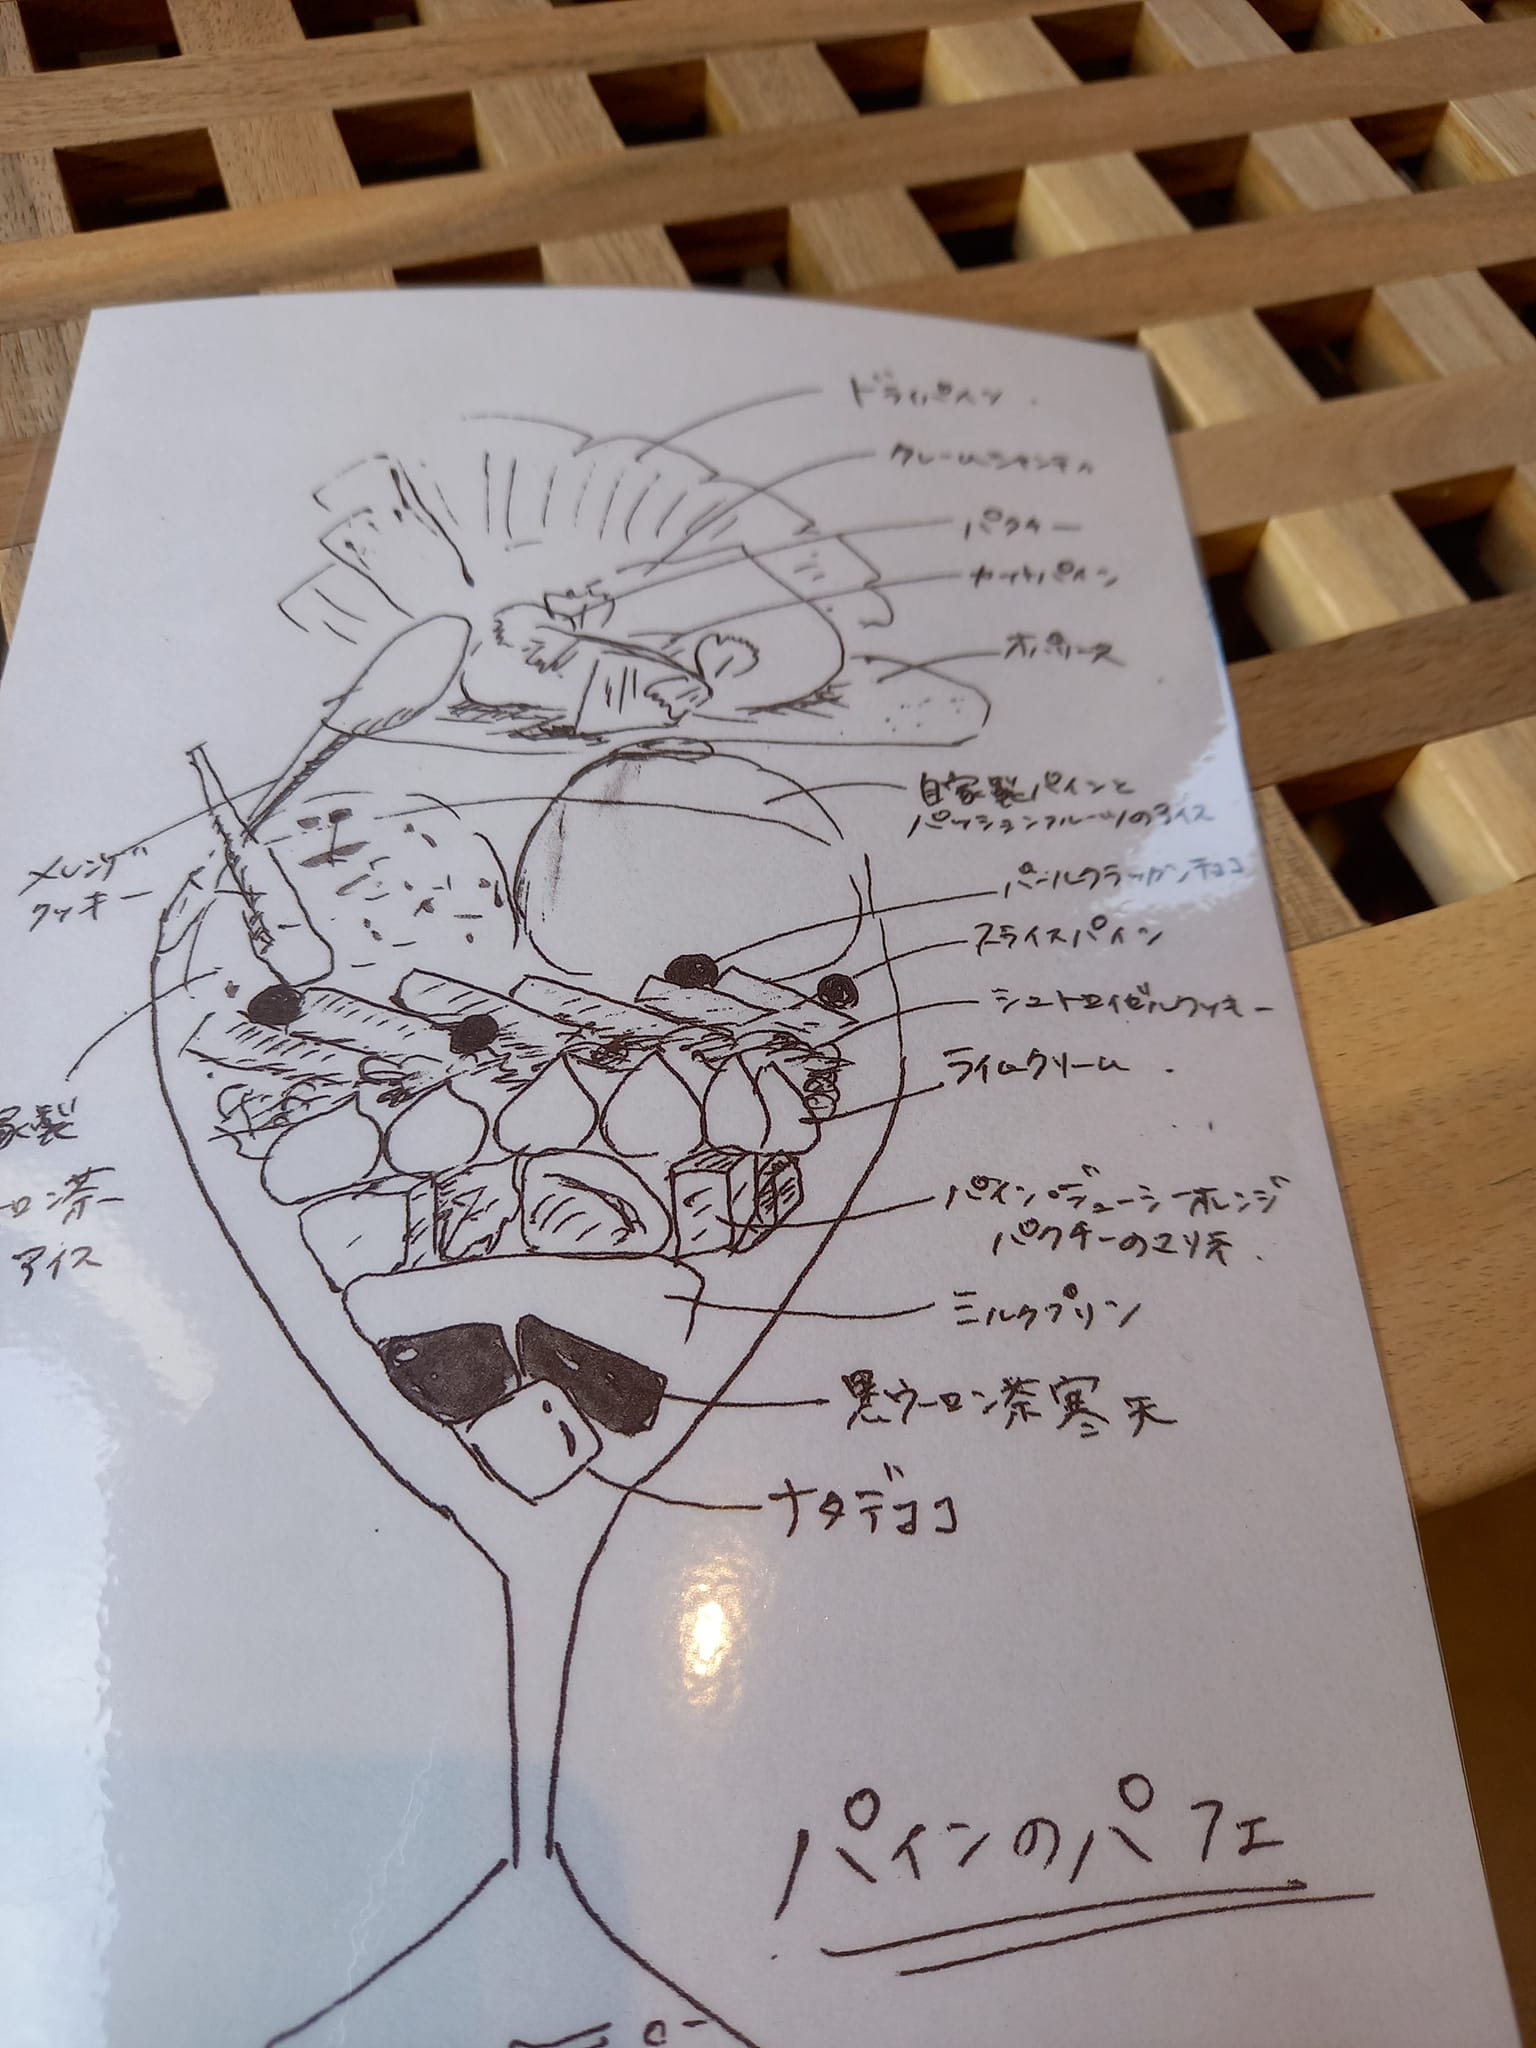 ドライパイン
クレームシャンティ
パクチー
カットパイン
オパリーヌ
自家製パインと
パッションフルーツのアイス
メレンゲ
クッキー
パールクラッカンチョコ
スライスパイン
シュトロイゼルクッキー
ライムクリーム
家製
ーロン茶
アイス
パイン・ジューシーオレンジ
パクチーのマリネ
ミルクプリン
黒ウーロン茶寒天
ナタデココ
パインのパフェ